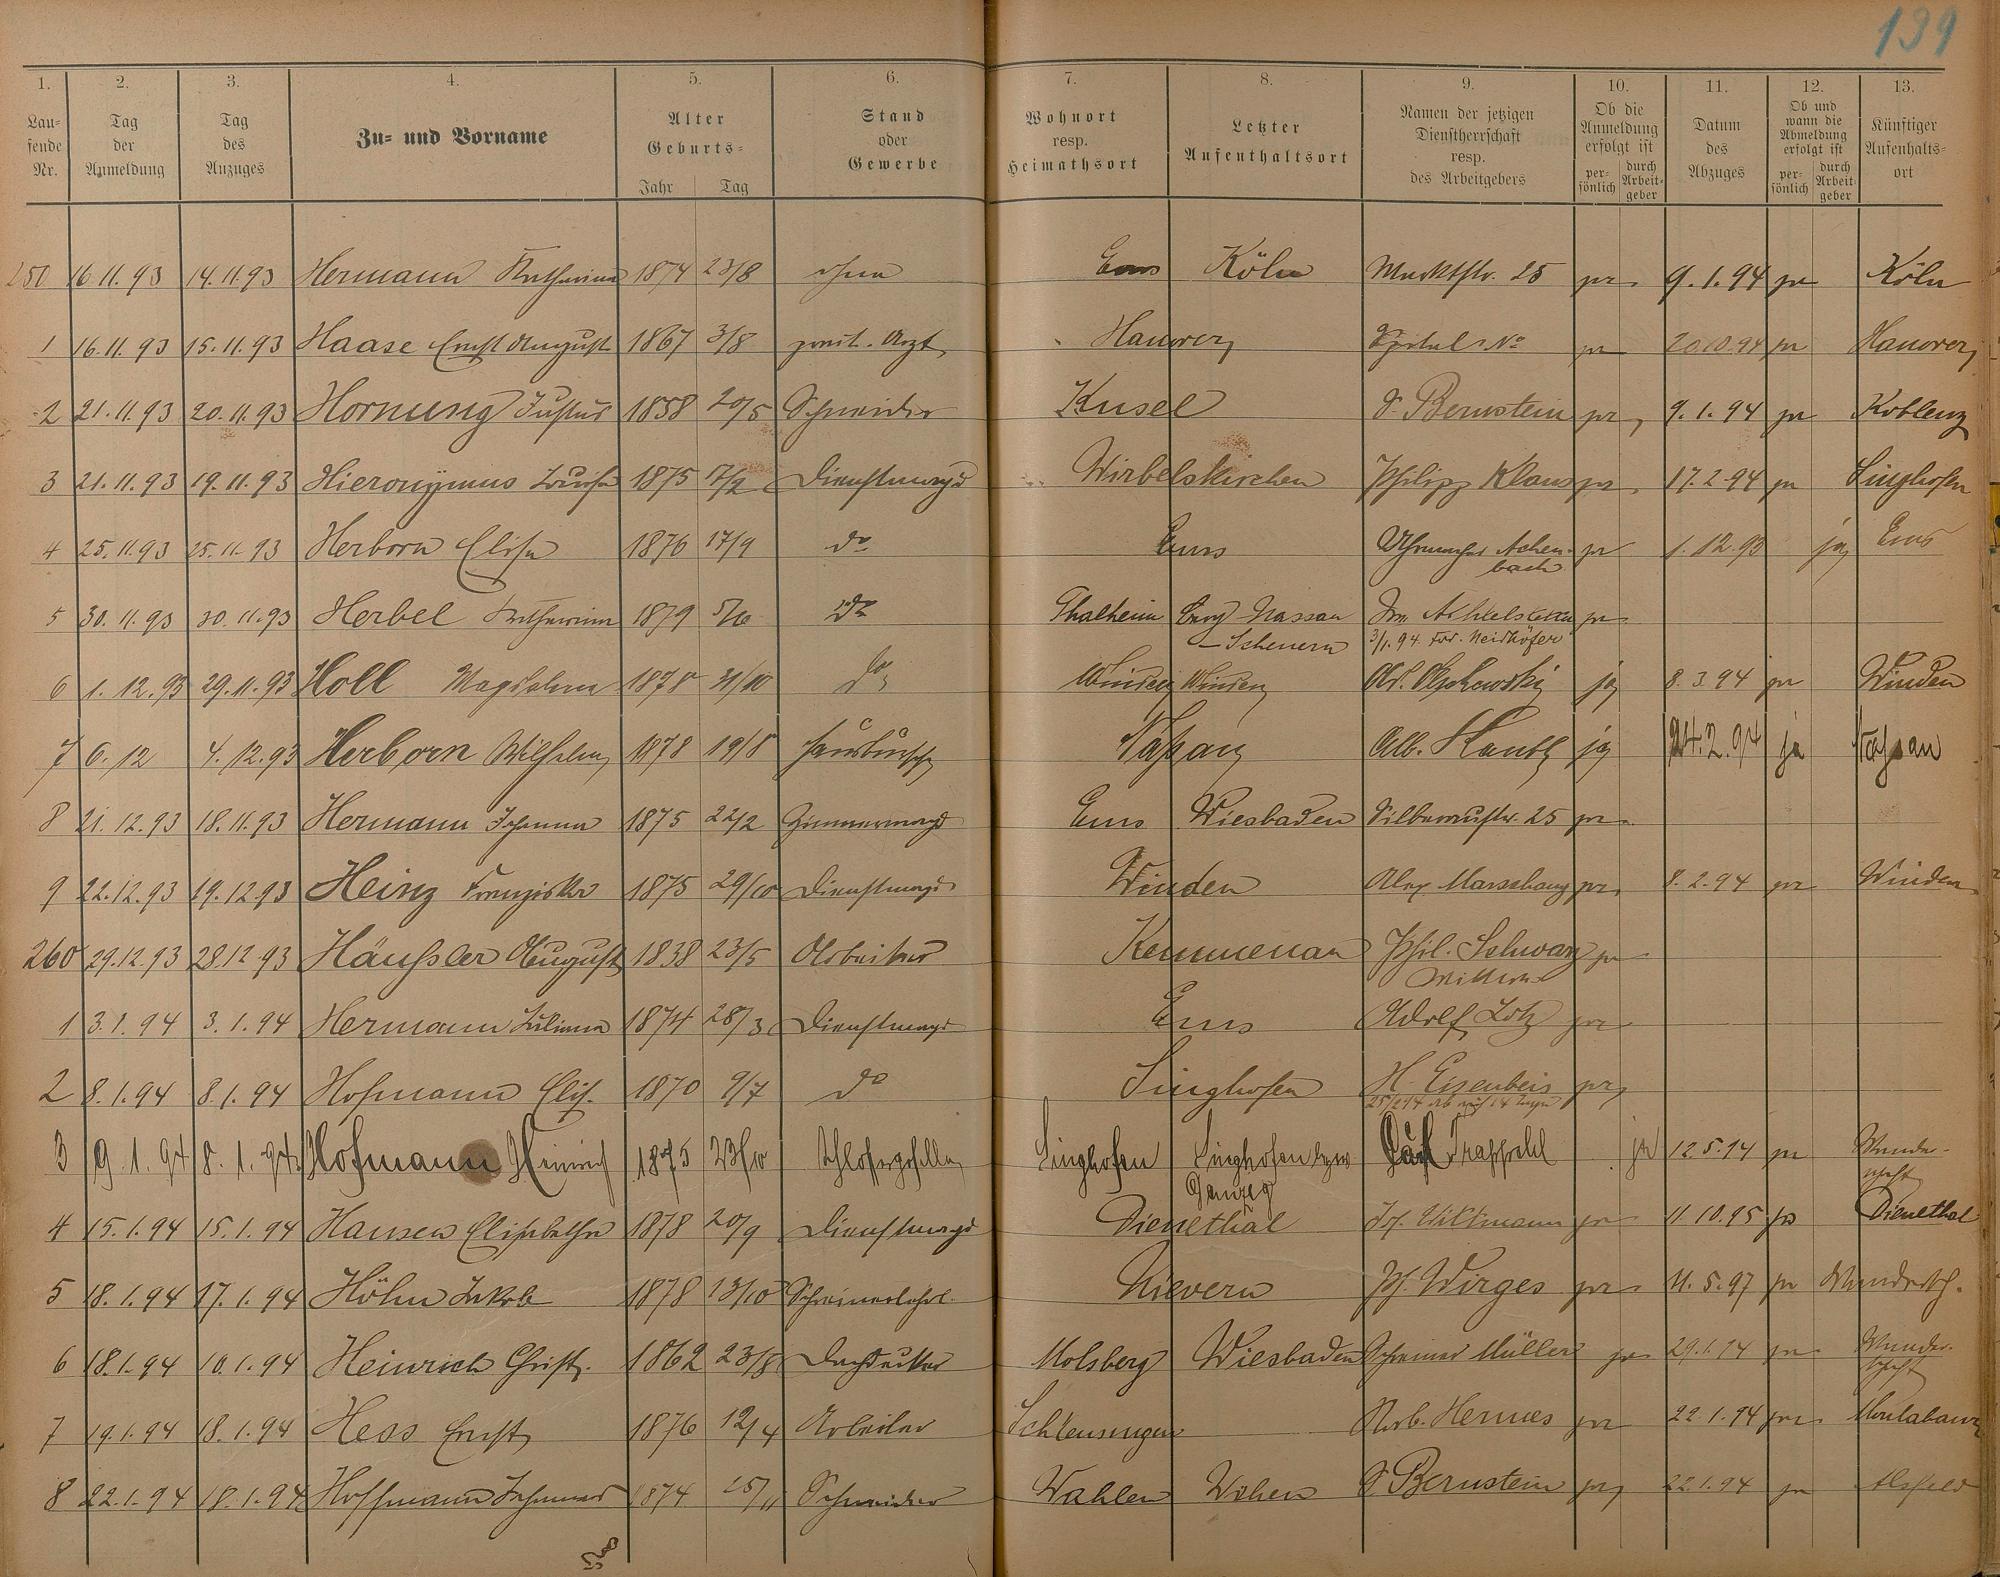 139
1. 2. 3. 4. 5. 6. 7. 8. 9. 10. 11. 12. 13.
Laufende Nr. | Tag der Anmeldung | Tag des Anzuges | Zu- und Vorname | Alter Geburts- Jahr Tag | Stand oder Gewerbe | Wohnort resp. Heimathsort | Letzter Aufenthaltsort | Namen der jetzigen Dienstherrschaft resp. des Arbeitgebers | Ob die Anmeldung erfolgt ist persönlich durch Arbeitgeber | Datum des Abzuges | Ob und wann die Abmeldung erfolgt ist persönlich durch Arbeitgeber | Künftiger Aufenhaltsort
250 16.11.93 14.11.93 Hermann Katharina 1874 23/8 ohne Ems Köln Marktstr. 25 9.1.94 Köln
1 16.11.93 15.11.93 Haase Ernst August 1867 3/8 Arzt Hanover 20.10.94 Hanover
2 21.11.93 20.11.93 Hornung Justus 1858 20/5 Schneider Kusel S. Bernstein 9.1.94 Koblenz
3 21.11.93 19.11.93 Hieronymus Louise 1875 Dienstmagd Philipp Klaus 17.2.94 Singhofen
4 25.11.93 25.11.93 Herborn Elise 1876 17/9 do Ems Uhrmacher Achen-
bach 1.12.93 ja Ems
5 30.11.93 30.11.93 Herbel Katharina 1879 do Thalheim Berg Nassau
- Scheuern 3/1.94 Neidhöfer
6 1.12.93 29.11.93 Holl Magdalena 1878 31/10 do Winden Winden ja 8.3.94 Winden
7 6.12 4.12.93 Herborn Wilhelm 1878 19/8 Hausbursche Naßau Alb. ja 24.2.94 ja Nassau
8 21.12.93 18.11.93 Hermann Johanna 1875 22/2 Zimmermagd Ems Wiesbaden Silberaustr. 25
9 22.12.93 19.12.93 Heinz Franziska 1875 29/10 Dienstmagd Winden 8.2.94 Winden
260 29.12.93 28.12.93 Häußler August 1838 23/5 Arbeiter Kemmenau Phil. Schwarz
Wittwe
1 3.1.94 3.1.94 Hermann Juliana 1874 28/3 Dienstmagd Ems Adolf Lotz
2 8.1.94 8.1.94 Hofmann Elis. 1870 9/7 do Singhofen H. Eisenbeis
3 9.1.94 8.1.94 Hofmann Heinrich 1875 23/10 Schlossergeselle Singhofen Singhofen bzw.
Danzig Carl Trappehl ja 12.5.94 Wander-
schaft
4 15.1.94 15.1.94 Hansen Elisabetha 1878 20/9 Dienstmagd Dienethal 11.10.95 Dienethal
5 18.1.94 17.1.94 Höhn Jakob 1878 13/10 Schreinerlehrl. Nievern Ph. Wirges 11.5.97 Wandersch.
6 18.1.94 10.1.94 Heinrich Christ. 1862 23/8 Dachdecker Molsberg Wiesbaden Schreiner Müller 29.1.94 Wander-
schaft
7 19.1.94 18.1.94 Hess Ernst 1876 12/4 Arbeiter Schleusingen Hermes 22.1.94 Montabaur
8 22.1.94 18.1.94 Hoffmann Johannes 1874 15/11 Schneider Wahlen S. Bernstein 22.1.94 Alsfeld